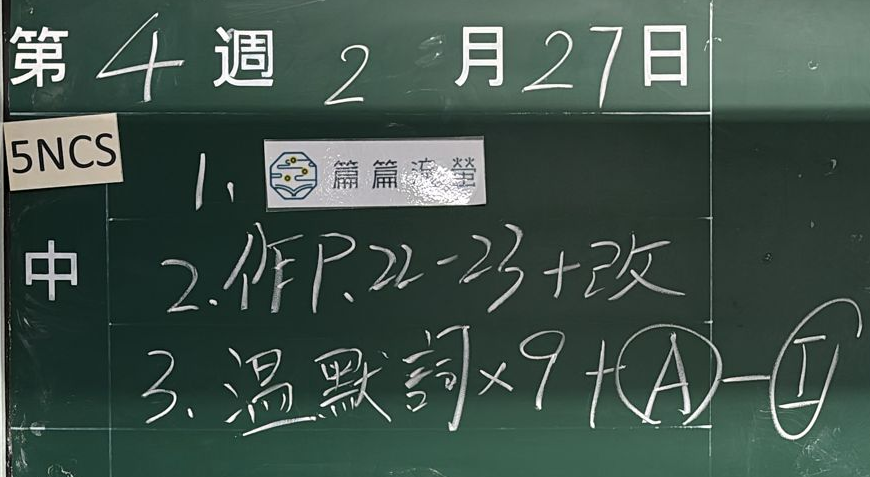 第4週 2月27日
5NCS
1. 篇篇流螢
中 2.作P.22-23+改
3.溫默詞×9+Ⓐ-Ⓘ